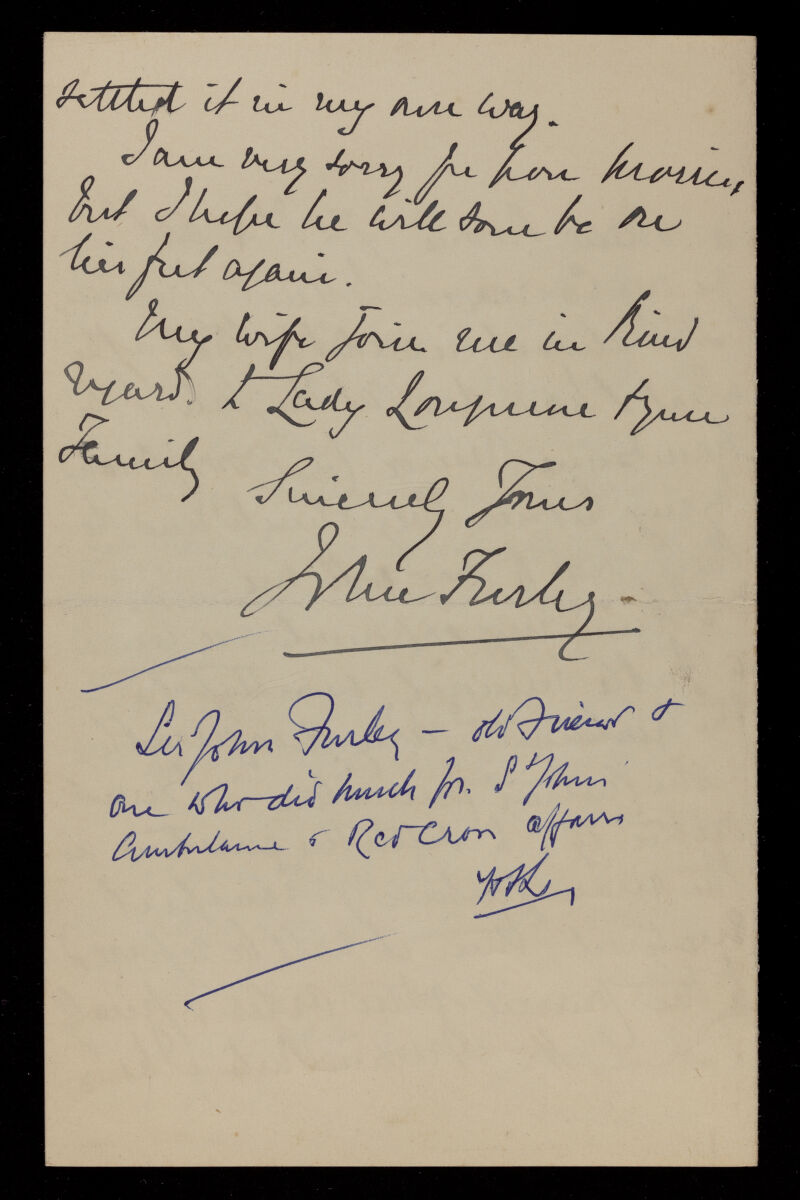 settled it in my own way.
I am very sorry for poor
but I hope he will soon be on
his feet again.
My wife joins me in kind
regards to Lady Longmore & your
Family
Sincerely Yours
John Furley
Sir John Furley — old Friend &
one who did much for St John
Ambulance & Red Cross affairs